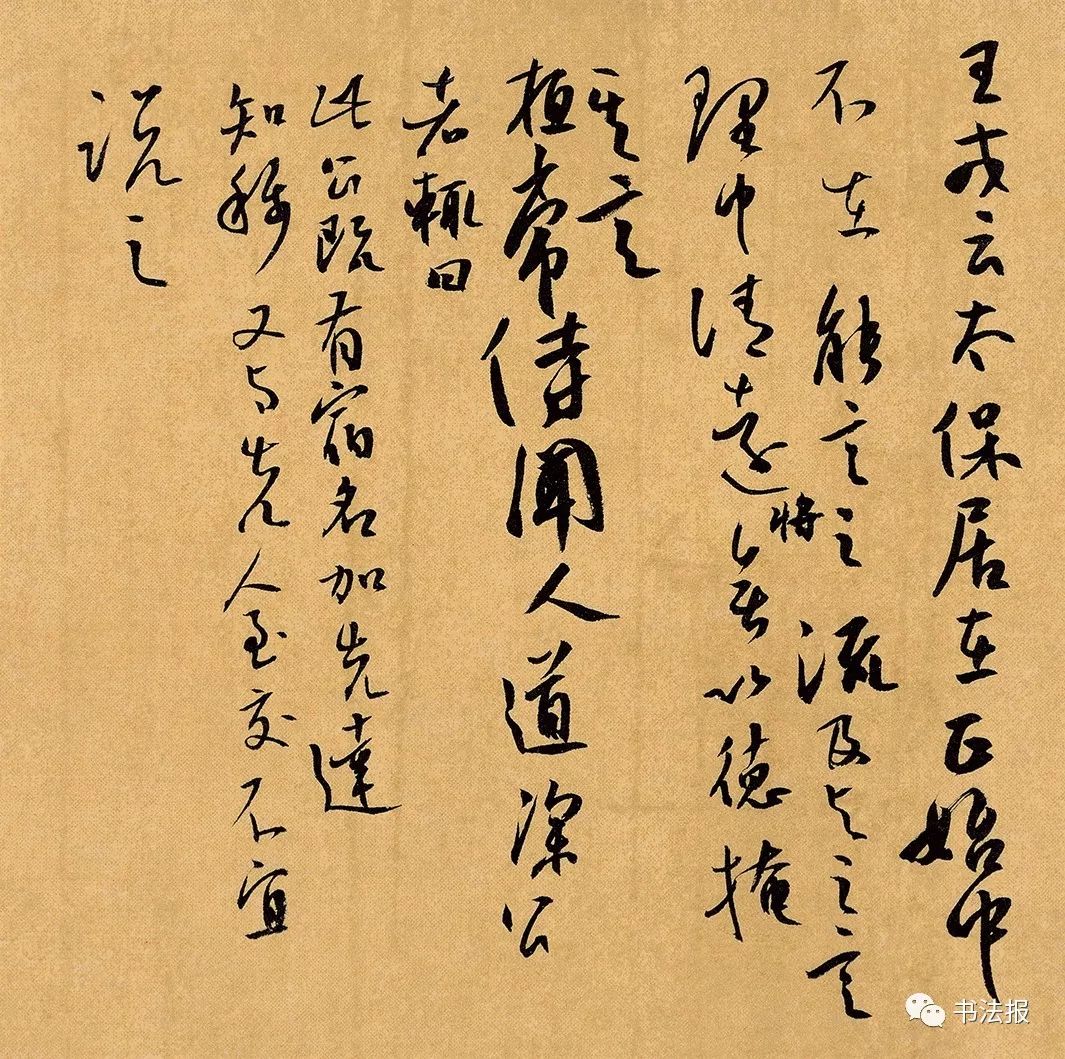 王戎云太保居在正始中
不在能言之流及与之言
理中清远将无以德掩
其言
桓常侍闻人道深公
者辄曰
此公既有宿名加先达
知称又与先人至交不宜
说之
书法报